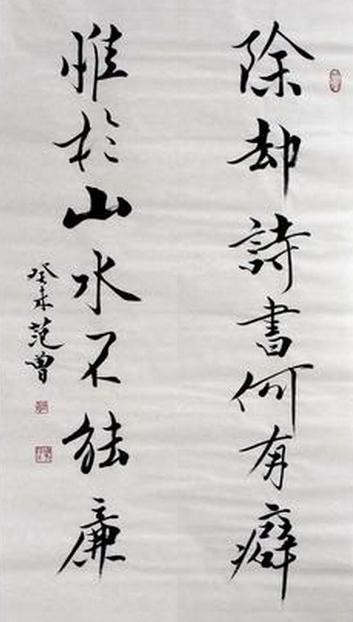 除却詩書何有癖
惟於山水不能廉
癸未范曾